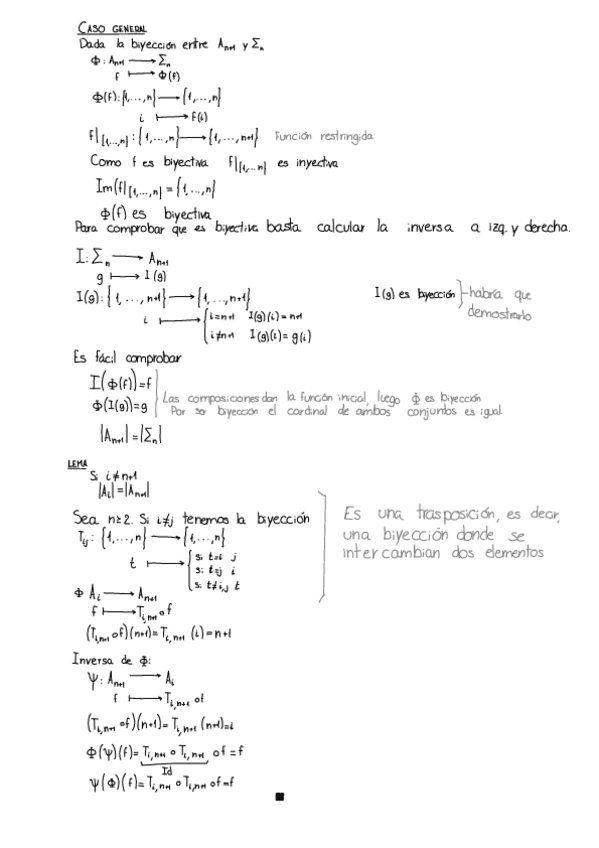 CASO GENERAL
Dada la biyección entre Aₙ₊₁ y Σₙ
Φ: Aₙ₊₁ ⟶ Σₙ
f ⟼ Φ(f)
Φ(f): {1,...,n} ⟶ {1,...,n}
i ⟼ f(i)
f|[1,...,n] : {1,...,n} ⟶ {1,...,n+1} Función restringida
Como f es biyectiva f|[1,...,n] es inyectiva
Im(f|[1,...,n] = {1,...,n}
Φ(f) es biyectiva
Para comprobar que es biyectiva basta calcular la inversa a izq. y derecha.
I: Σₙ ⟶ Aₙ₊₁
g ⟼ I(g)
I(g): {1,...,n+1} ⟶ {1,...,n+1} I(g) es biyección} habría que
i ⟼ { i=n+1 I(g)(i)=n+1 demostrarlo
i≠n+1 I(g)(i)=g(i)
Es fácil comprobar
I(Φ(f))=f
Las composiciones dan la función inicial, luego Φ es biyección
Φ(I(g))=g
Por ser biyección el cardinal de ambos conjuntos es igual
|Aₙ₊₁|=|Σₙ|
LEMA
Si i≠n+1
|Aᵢ|=|Aₙ₊₁|
Sea n≥2. Si i≠j tenemos la biyección
Tᵢⱼ: {1,...,n} ⟶ {1,...,n}
Es una trasposición, es decir,
una biyección donde se
intercambian dos elementos
t ⟼ { si t=i j
si t=j i
si t≠i,j t
Φ Aᵢ ⟶ Aₙ₊₁
f ⟼ Tᵢ,ₙ₊₁ ∘ f
(Tᵢ,ₙ₊₁ ∘ f)(n+1)=Tᵢ,ₙ₊₁ (i)=n+1
Inversa de Φ:
Ψ: Aₙ₊₁ ⟶ Aᵢ
f ⟼ Tᵢ,ₙ₊₁ ∘ f
(Tᵢ,ₙ₊₁ ∘ f)(n+1)=Tᵢ,ₙ₊₁ (n+1)=i
Φ(Ψ)(f)=Tᵢ,ₙ₊₁ ∘ Tᵢ,ₙ₊₁ ∘ f=f
Id
Ψ(Φ)(f)=Tᵢ,ₙ₊₁ ∘ Tᵢ,ₙ₊₁ ∘ f=f